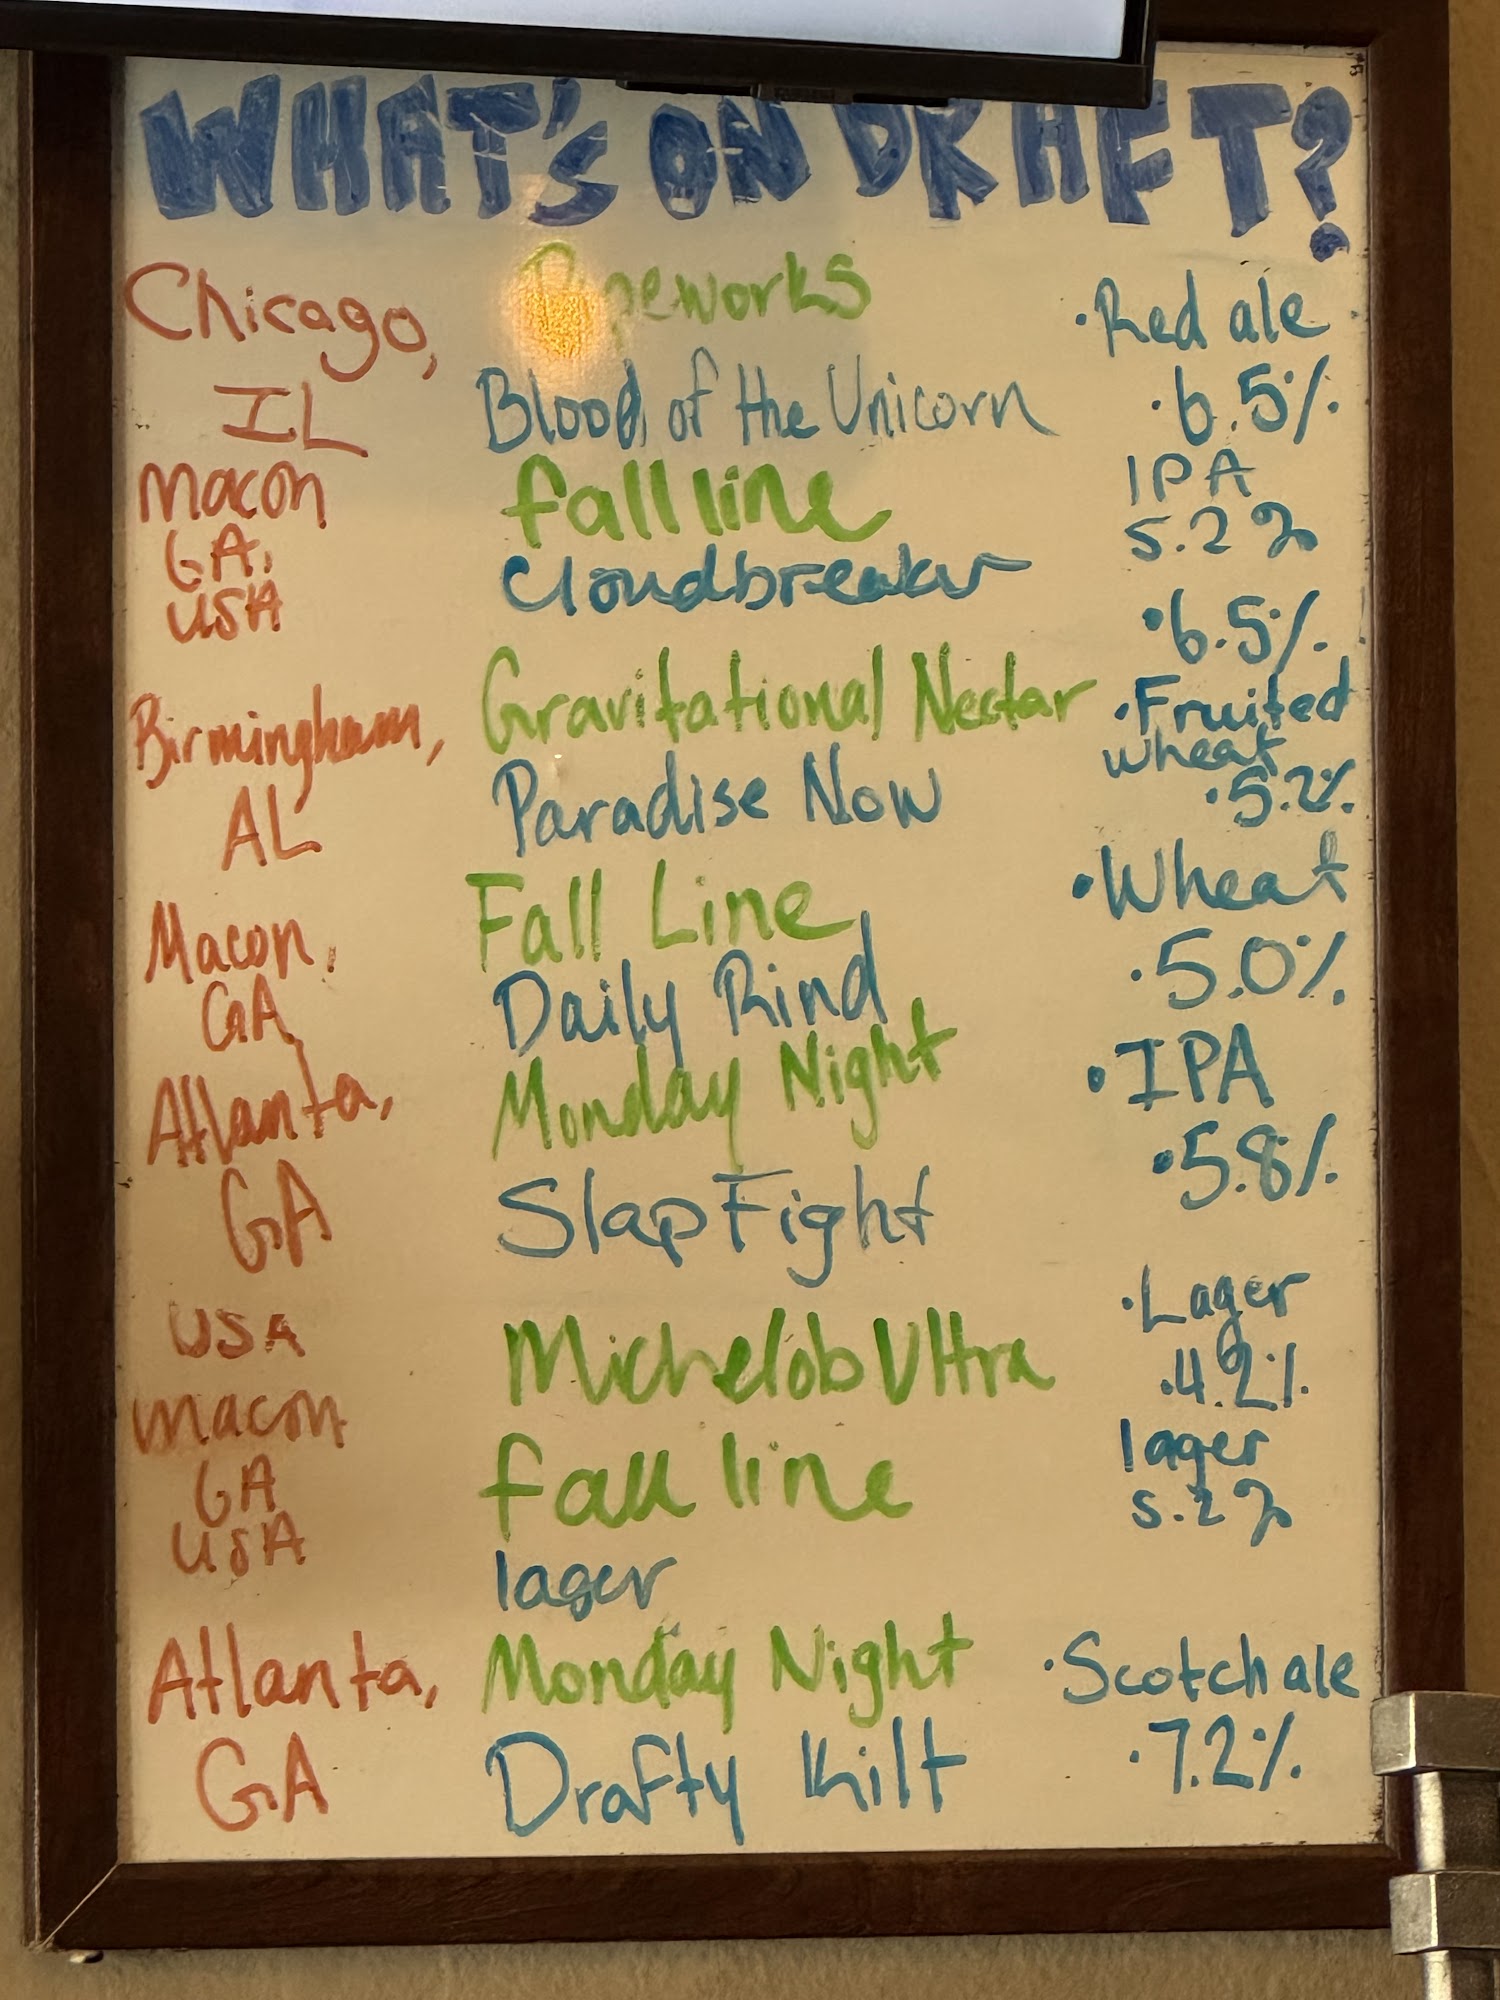 WHAT'S ON DRAFT?
Chicago,
IL
Pipeworks
Blood of the Unicorn
•Red ale
•6.5%
Macon
GA,
USA
fall line
Cloudbreaker
IPA
5.2%
Birmingham,
AL
Gravitational Nectar
Paradise Now
•6.5%
•Fruited
wheat
•5.2%
Macon,
GA
Fall Line
Daily Rind
•Wheat
•5.0%
Atlanta,
GA
Monday Night
Slap Fight
•IPA
•5.8%
USA
Michelob Ultra
•Lager
•4.2%
Macon
GA
USA
fall line
lager
lager
5.2%
Atlanta,
GA
Monday Night
Drafty Kilt
•Scotch ale
•7.2%